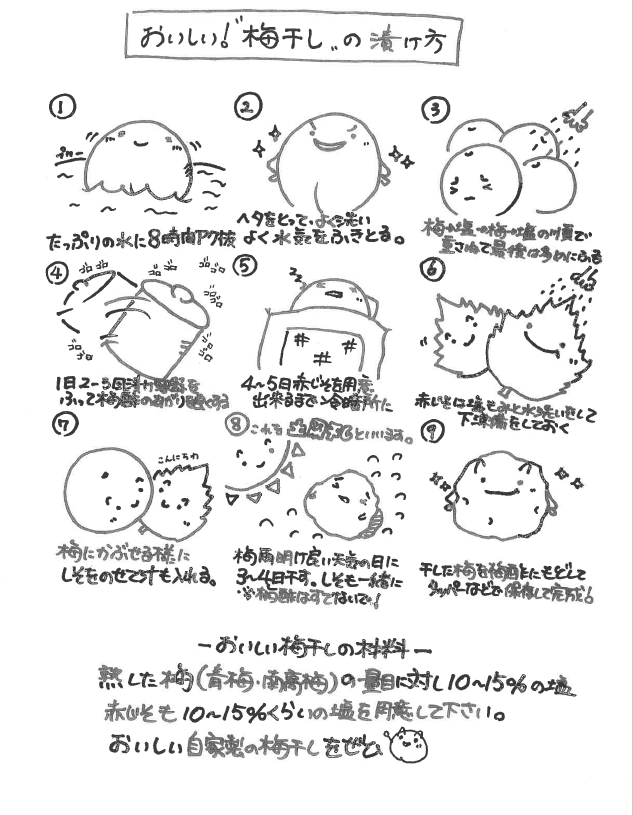 おいしい!"梅干し"の漬け方
①
プカー
たっぷりの水に8時間アク抜
②
ヘタをとって、よく洗い
よく水気をふきとる。
③
梅→塩→梅→塩の順で
重さねて最後は多めにふる
④
ゴロゴロ
ゴロゴロ
ゴロゴロ
ゴロゴロ
ゴロゴロ
1日2~3回
ふって梅酢のあがりを
⑤
zz
4~5日赤じそを用意
出来るまで冷暗所に
⑥
赤じそは塩もみと水洗いをして
下準備をしておく
⑦
こんにちわ
梅にかぶせる様に
しそをのせて汁も入れる。
⑧
これを土用干しといいます。
梅雨明け良い天気の日に
3~4日干す。しそも一緒に
※梅酢はすてないで!
⑨
干した梅を梅酢にもどして
タッパーなどで保存して完成!
ーおいしい梅干しの材料ー
熟した梅(青梅・南高梅)の量目に対し10~15%の塩
赤じそも10~15%くらいの塩を用意して下さい。
おいしい自家製の梅干しをぜひ